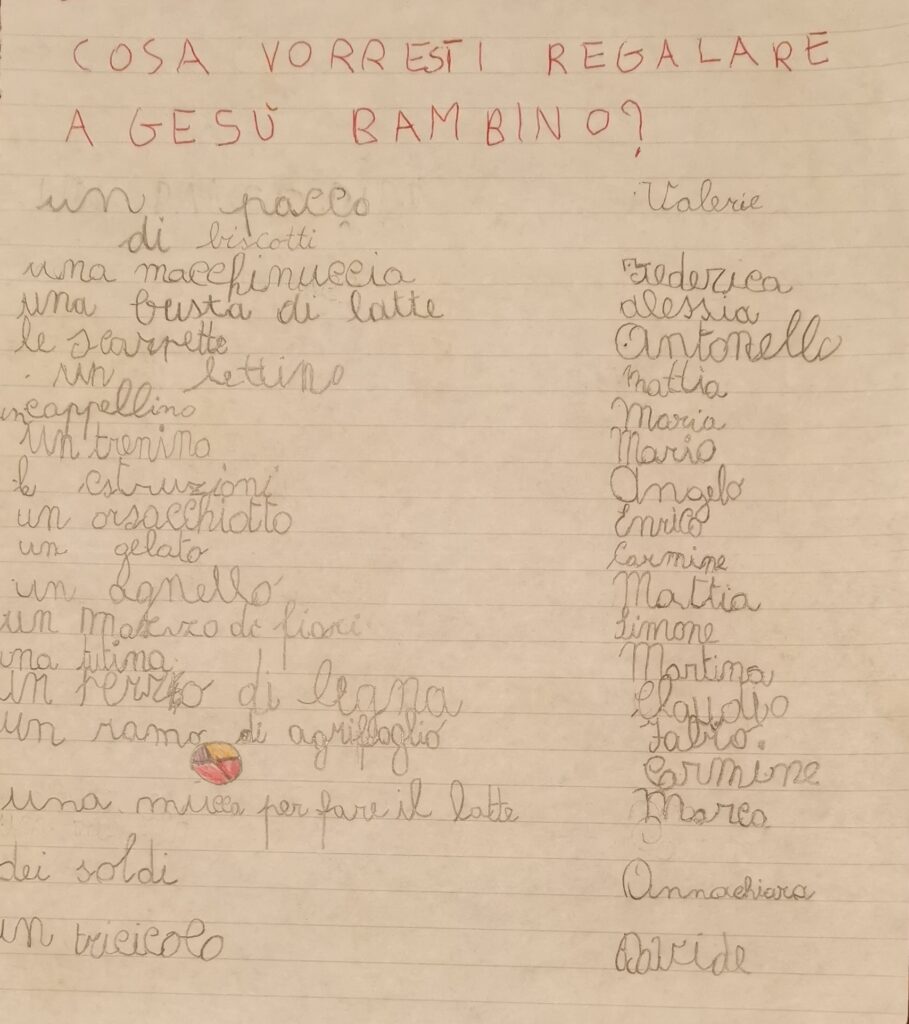 COSA VORRESTI REGALARE
A GESÙ BAMBINO?
un pacco Valerie
di biscotti
una macchinuccia Federica
una busta di latte Alessia
le scarpette Antonello
un lettino Mattia
un cappellino Maria
un trenino Mario
le costruzioni Angelo
un orsacchiotto Enrico
un gelato Carmine
un agnello Mattia
un di fiori Simone
una tutina Martina
un di legna Claudio
un ramo di agrifoglio Fabio.
Carmine
una mucca per fare il latte Marco
dei soldi Annachiara
un tricicolo Davide